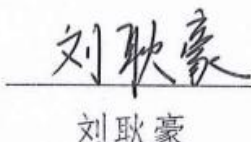 刘耿豪
刘耿豪